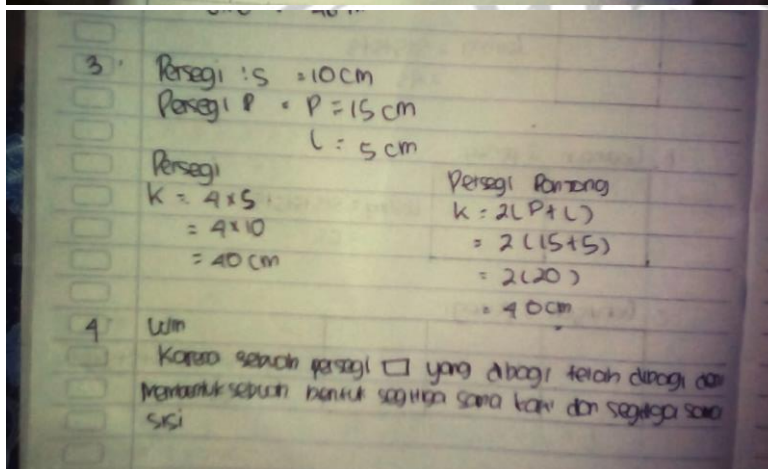 3. Persegi : s = 10 cm
Persegi P = P = 15 cm
l = 5 cm
Persegi
K = 4 x s
= 4 x 10
= 40 cm
Persegi Panjang
K = 2 (P + l)
= 2 (15 + 5)
= 2 (20)
= 40 cm
4
sebuah persegi □ yang dibagi telah dibagi dan
membentuk sebuah bentuk segitiga sama kaki dan segitiga sama
sisi